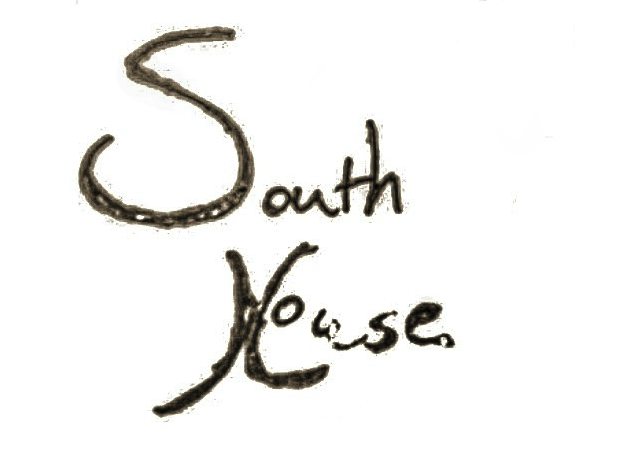 South
House